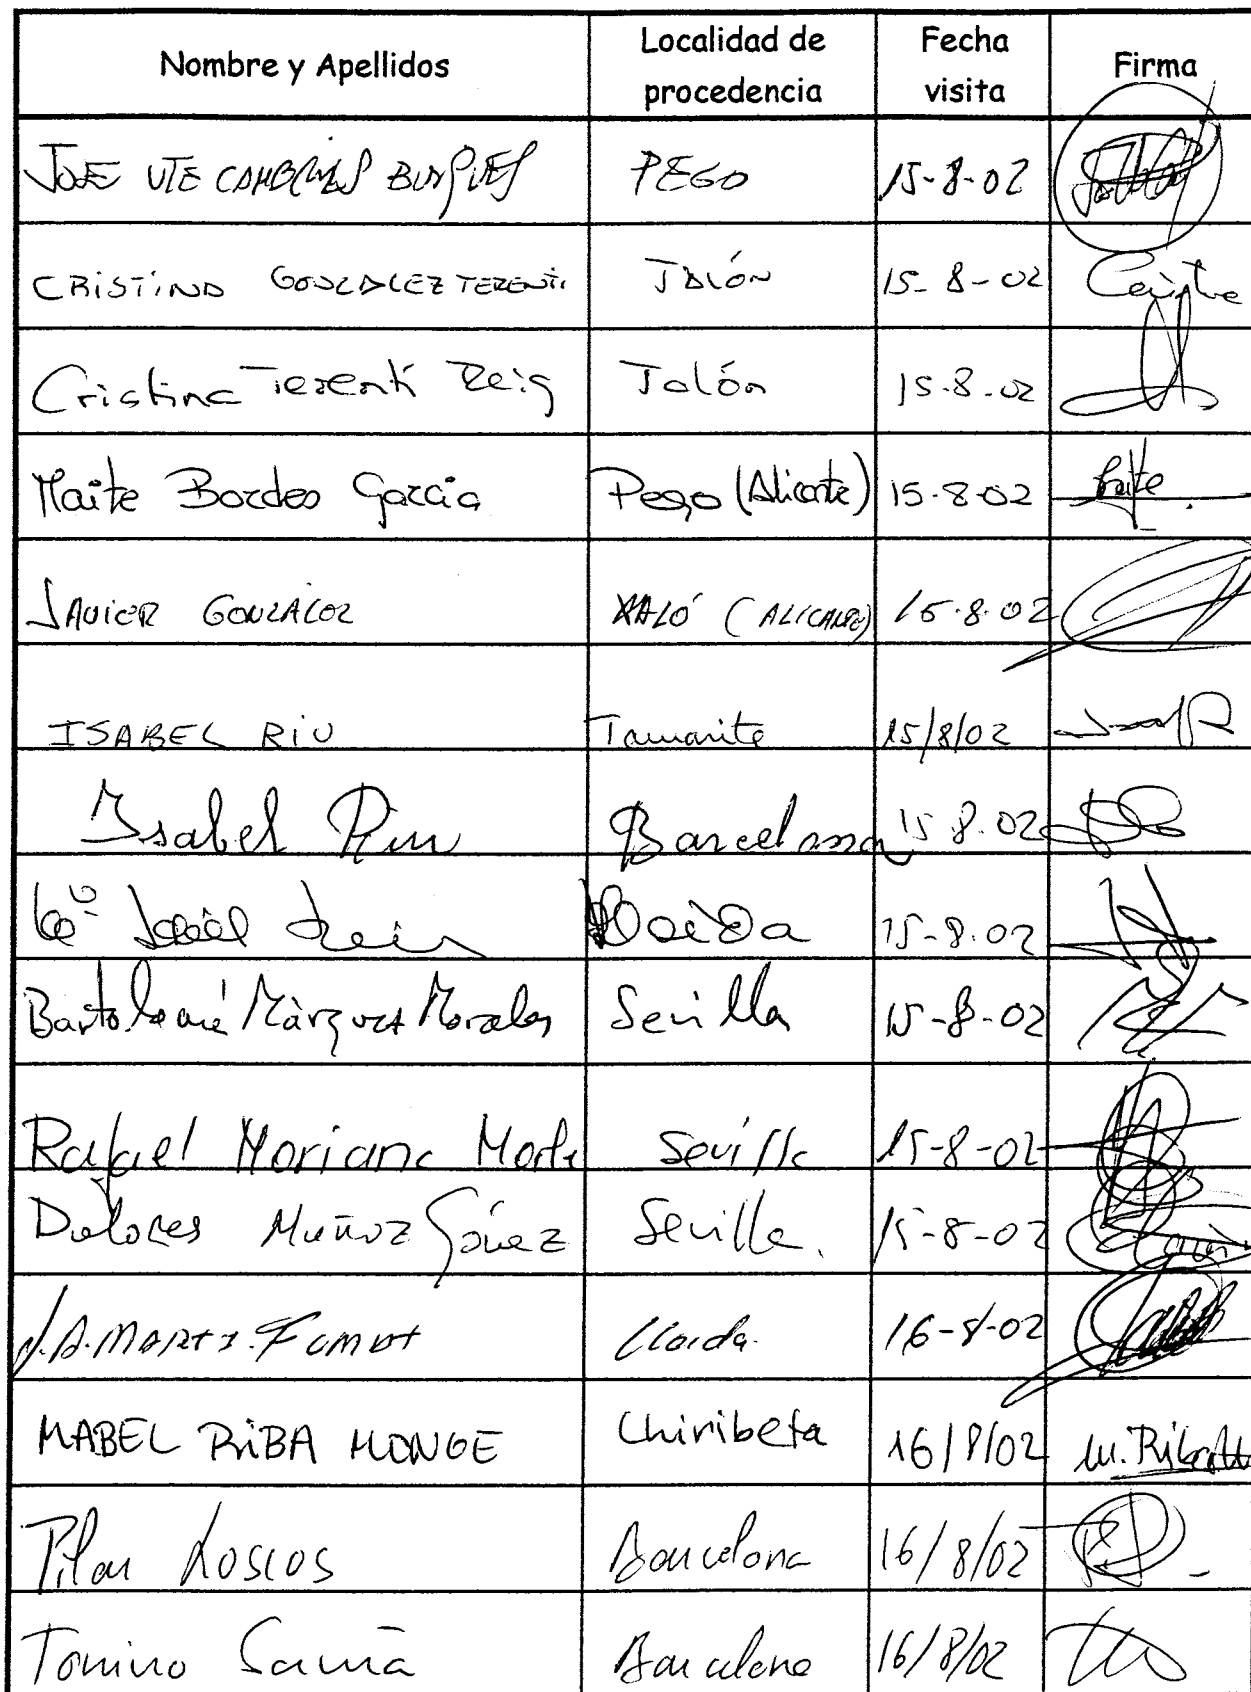 Nombre y Apellidos Localidad de procedencia Fecha visita Firma
JOSE VTE CAMBRILS PEGO 15-8-02
CRISTINA GONZALEZ TERENTI JALÓN 15-8-02
Cristina Terentí Reig Jalón 15-8-02
Maite Bordes García Pego (Alicante) 15-8-02 Maite
JAVIER GONZALEZ XALÓ (ALICANTE) 15-8-02
ISABEL RIU Tamarite 15/8/02
Isabel Riu Barcelona 15.8.02
15-8-02
Bartolomé Márquez Morales Sevilla 15-8-02
Rafael Moriana Sevilla 15-8-02
Dolores Muñoz Sevilla. 15-8-02
J.A. MARTI 16-8-02
MABEL RIBA MONGE Chiribeta 16/8/02
Pilar Loscos Barcelona 16/8/02
Barcelona 16/8/02